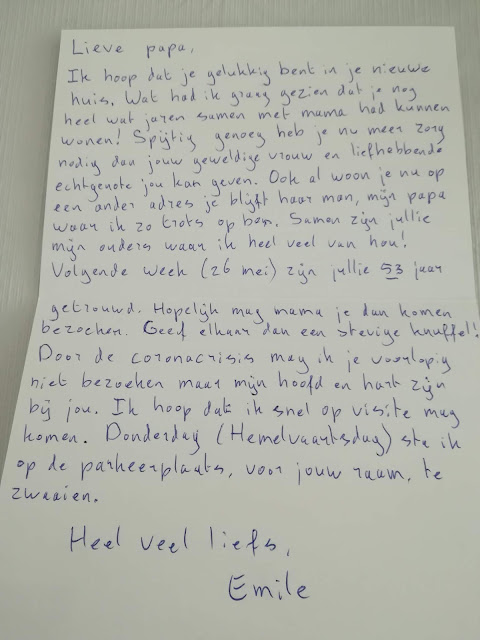 Lieve papa,
Ik hoop dat je gelukkig bent in je nieuwe
huis. Wat had ik graag gezien dat je nog
heel wat jaren samen met mama had kunnen
wonen! Spijtig genoeg heb je nu meer zorg
nodig dan jouw geweldige vrouw en liefhebbende
echtgenote jou kan geven. Ook al woon je nu op
een ander adres je blijft haar man, mijn papa
waar ik zo trots op ben. Samen zijn jullie
mijn ouders waar ik heel veel van hou!
Volgende week (26 mei) zijn jullie 53 jaar
getrouwd. Hopelijk mag mama je dan komen
bezoeken. Geef elkaar dan een stevige knuffel!
Door de coronacrisis mag ik je voorlopig
niet bezoeken maar mijn hoofd en hart zijn
bij jou. Ik hoop dat ik snel op visite mag
komen. Donderdag (Hemelvaartsdag) sta ik
op de parkeerplaats, voor jouw raam, te
zwaaien.
Heel veel liefs,
Emile